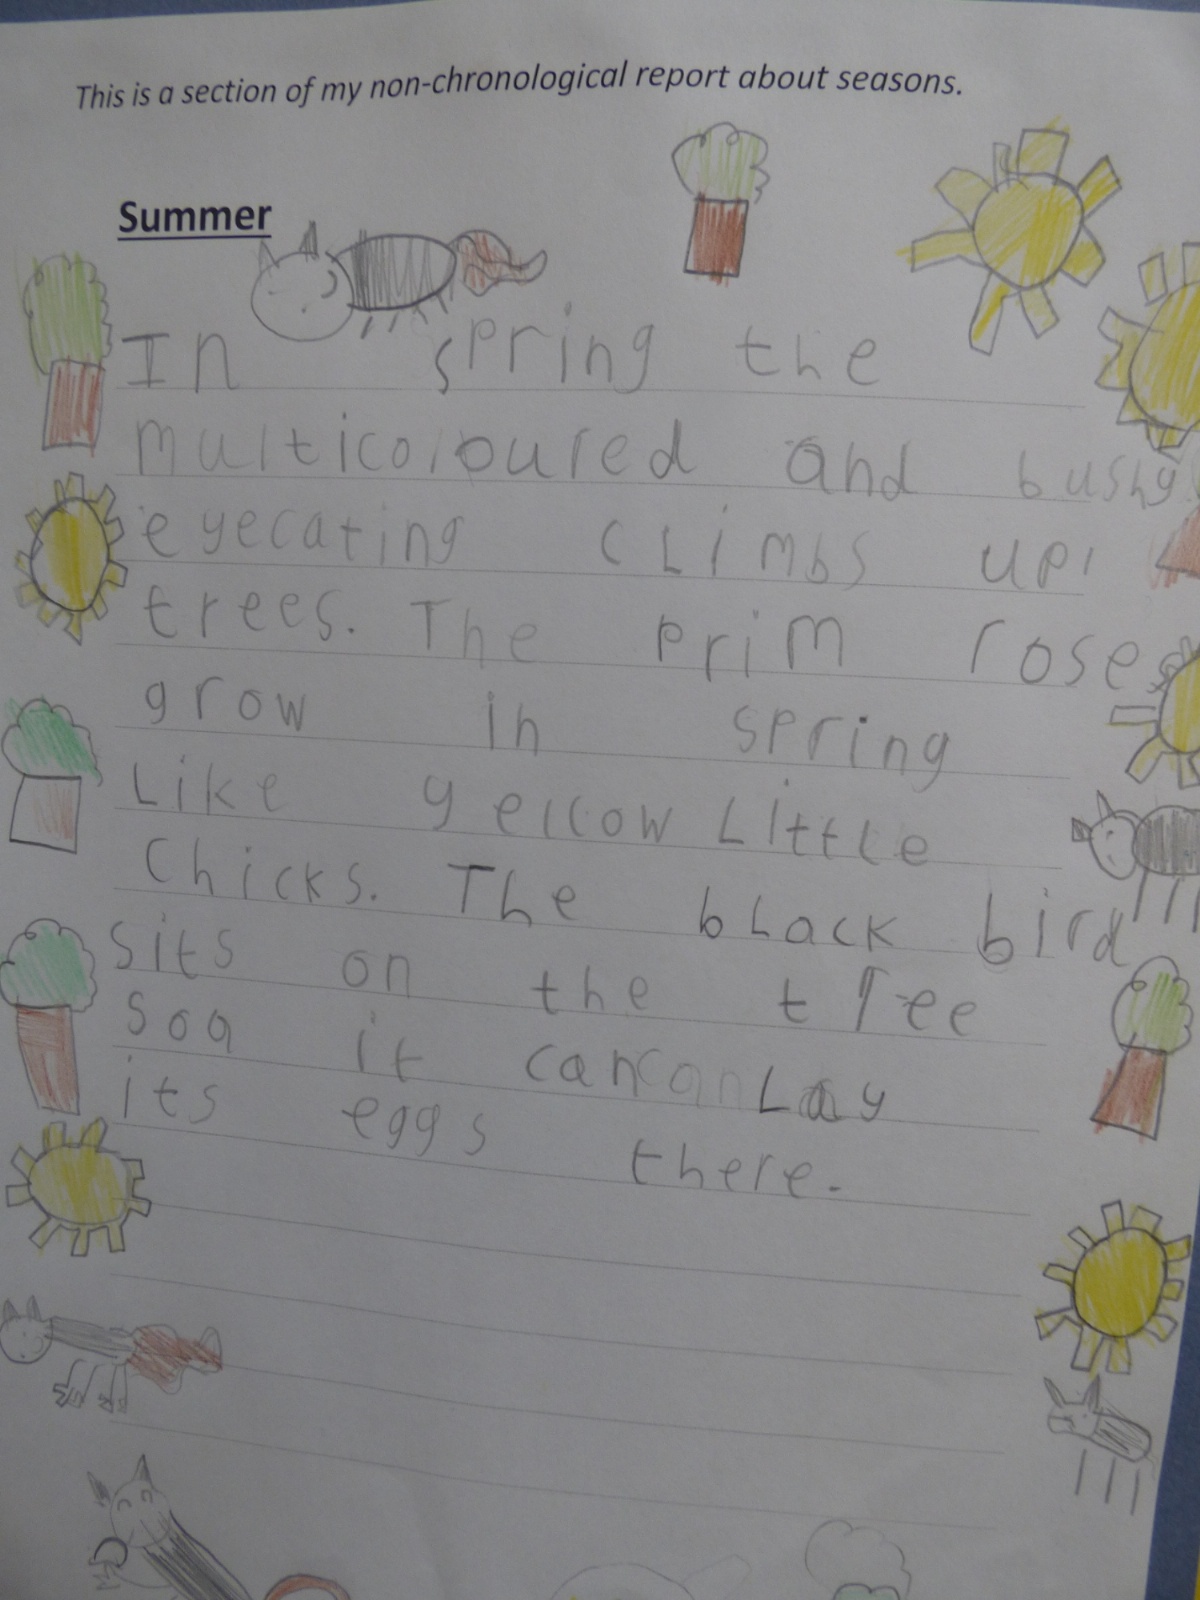 This is a section of my non-chronological report about seasons.
Summer
In spring the
multicoloured and bushy
eyecating climbs up
trees. The prim rose
grow in spring
Like yellow Little
Chicks. The bLack bird
sits on the tree
soa it can can Lay
its eggs there.